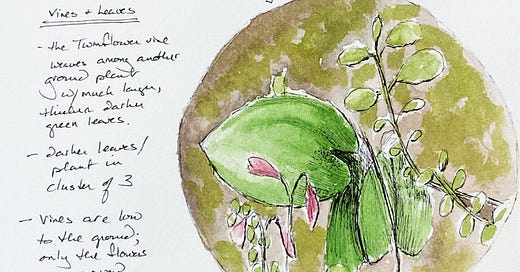 Vines + Leaves
- the Twinflower vine
weaves among another
ground plant
w/ much larger,
thicker darker
green leaves.
- darker leaves/
plant in
cluster of 3
- Vines are low
to the ground;
only the flowers